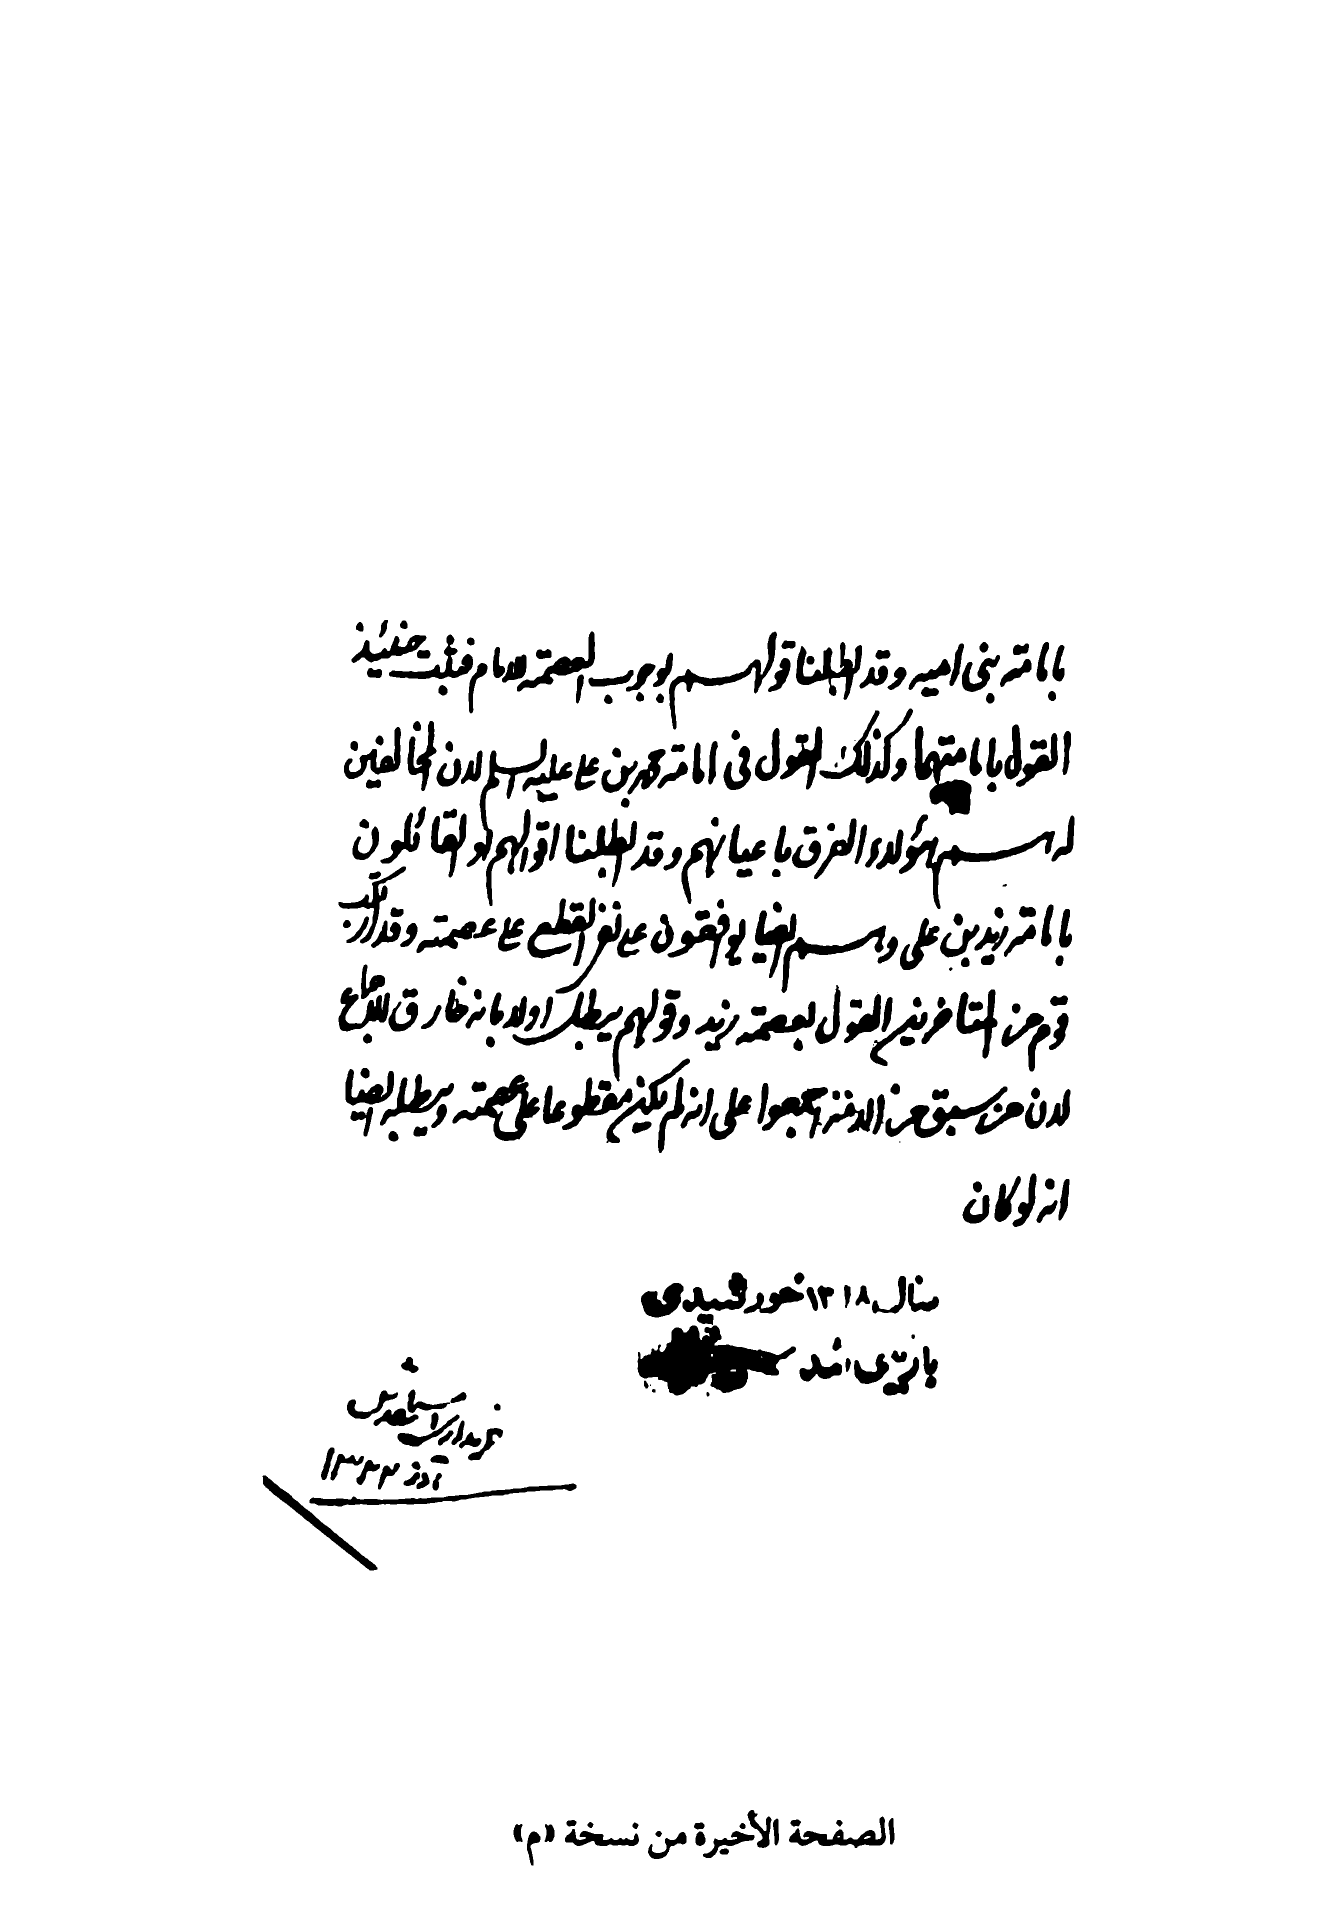 بامامة بنى اميه وقد ابطلنا قولهم بوجوب العصمة للامام فثبت حينئذ
القول بامامتهما وكذلك القول فى امامة محمد بن على عليه السلم لان المخالفين
لهم هؤلاء الفرق باعيانهم وقد ابطلنا اقوالهم والقائلون
بامامة زيد بن على وهم ايضا يوافقون على نفى القطع على عصمته وقد ارتكب
قوم من المتاخرين القول بعصمة زيد وقولهم يبطل اولا بانه خارق للاجماع
لان من سبق من الازمنة اجمعوا على انه لم يكن مقطوعا على عصمته ويبطله ايضا
انه لوكان
بسال ١٣١٨ خورشیدی
بازبینی شد
خریداری شد
آذر ١٣٣٣
الصفحة الأخيرة من نسخة «م»